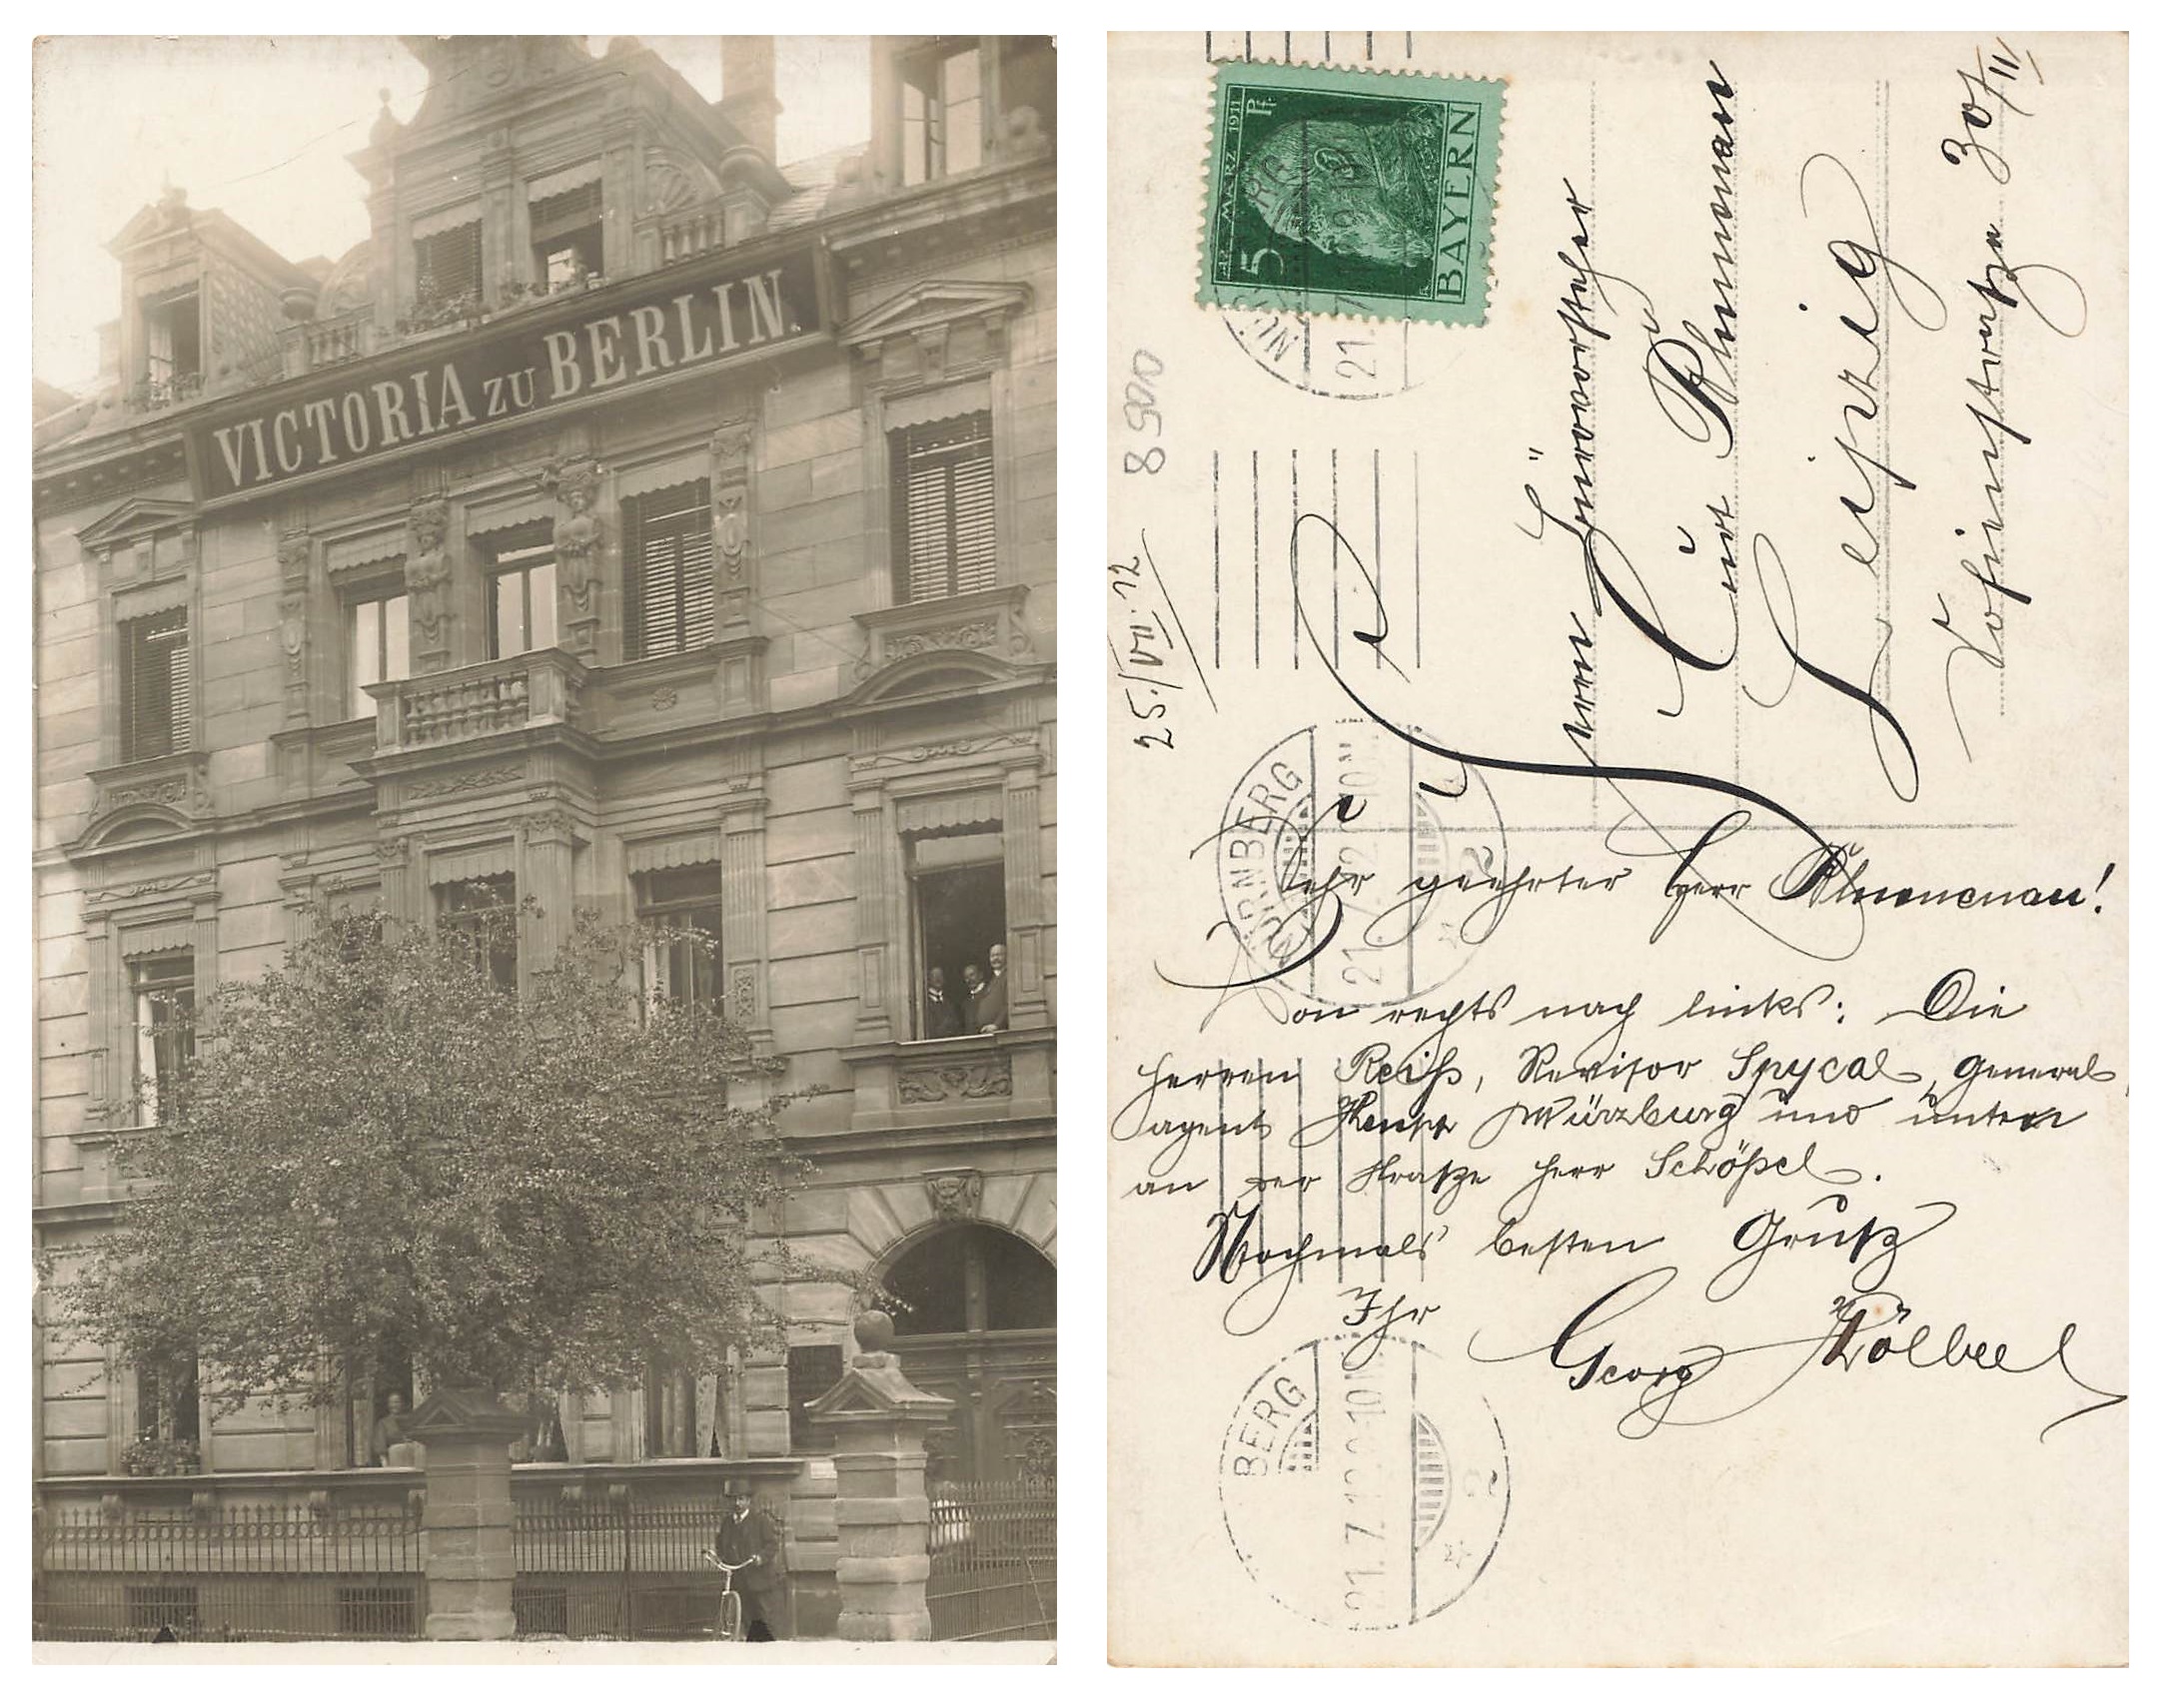 VICTORIA ZU BERLIN.
12. MÄRZ 1911
5 Pf.
BAYERN
NÜRNBERG
21.
8900
25./VII. 12
Herrn Bürovorsteher
Curt Blumenau
Leipzig
Sofienstraße 30/II
NÜRNBERG
21. 7. 12
2
Sehr geehrter Herr Blumenau!
Von rechts nach links: Die
Herren Reiß, Revisor Spycal, General
agent Würzburg und unten
an der Straße Herr Schößel.
Nochmals besten Gruß
Ihr
Georg Kölbel
BERG
21. 7. 12
2